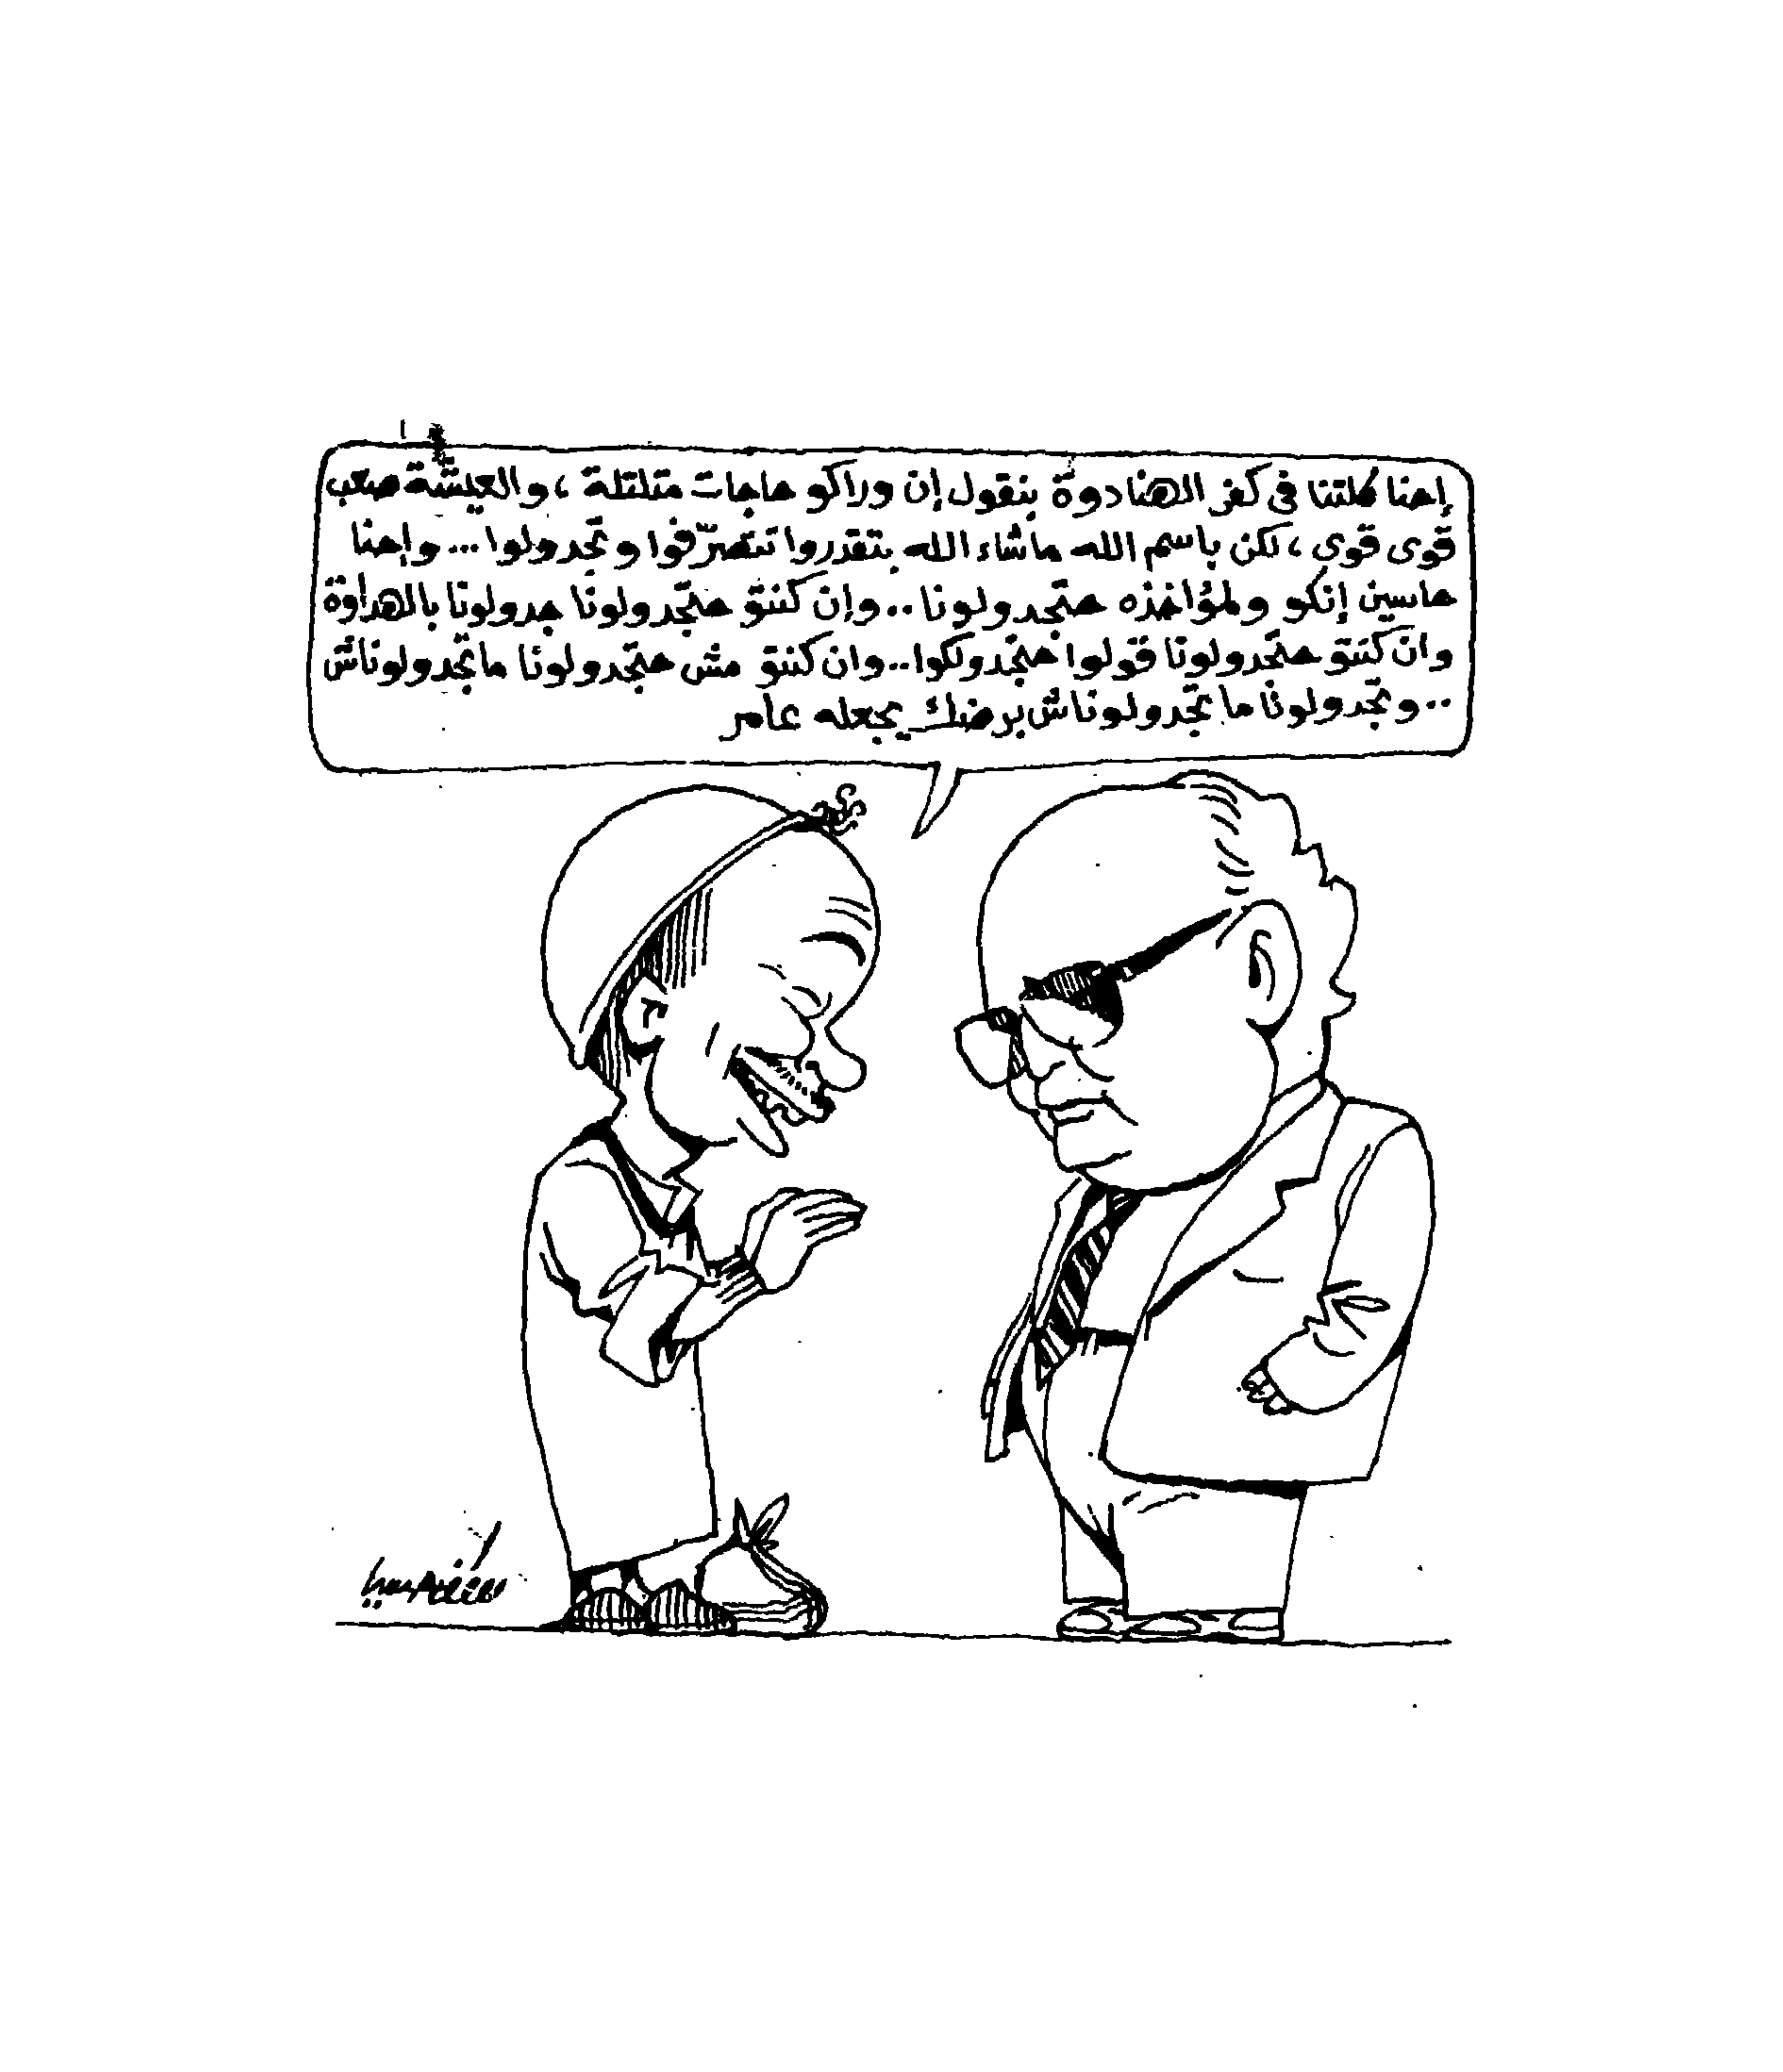 إحنا كلتنا فى كفر الهنادوة بنقول إن وراكو حاجات متلتلة ، والعيشة صعب
قوى قوى ، لكن باسم الله ماشاء الله بتقدروا تتصرّفوا وتجدولوا ... وإحنا
حاسين إنكو ولمؤاخذه حتجدولونا .. وإن كنتو حتجدولونا جدولونا بالهداوة
وان كنتو حتجدولونا قولوا حنجدولكوا .. وان كنتو مش حتجدولونا ماتجدولوناش
.. وتجدولونا ما تجدولوناش برضك يجعله عامر